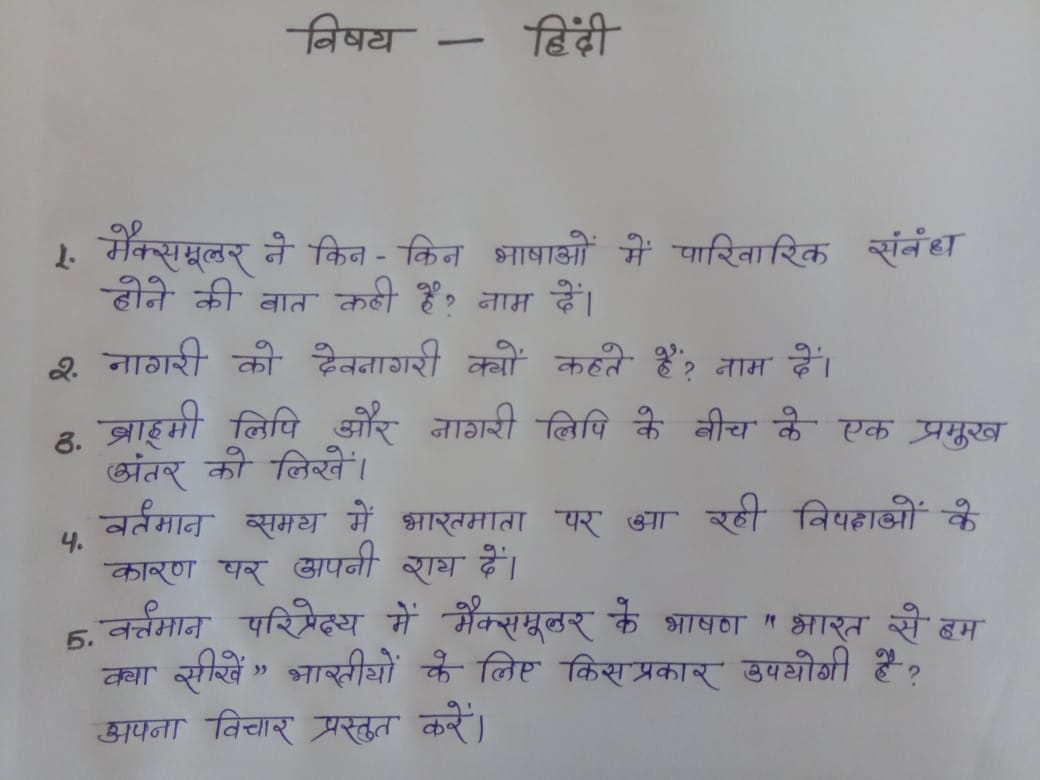 विषय — हिंदी
1. मैक्समूलर ने किन - किन भाषाओं में पारिवारिक संबंध
होने की बात कही है? नाम दें।
2. नागरी को देवनागरी क्यों कहते हैं? नाम दें।
3. ब्राह्मी लिपि और नागरी लिपि के बीच के एक प्रमुख
अंतर को लिखें।
4. वर्तमान समय में भारतमाता पर आ रही विपदाओं के
कारण पर अपनी राय दें।
5. वर्त्तमान परिप्रेक्ष्य में मैक्समूलर के भाषण "भारत से हम
क्या सीखें" भारतीयों के लिए किस प्रकार उपयोगी है?
अपना विचार प्रस्तुत करें।